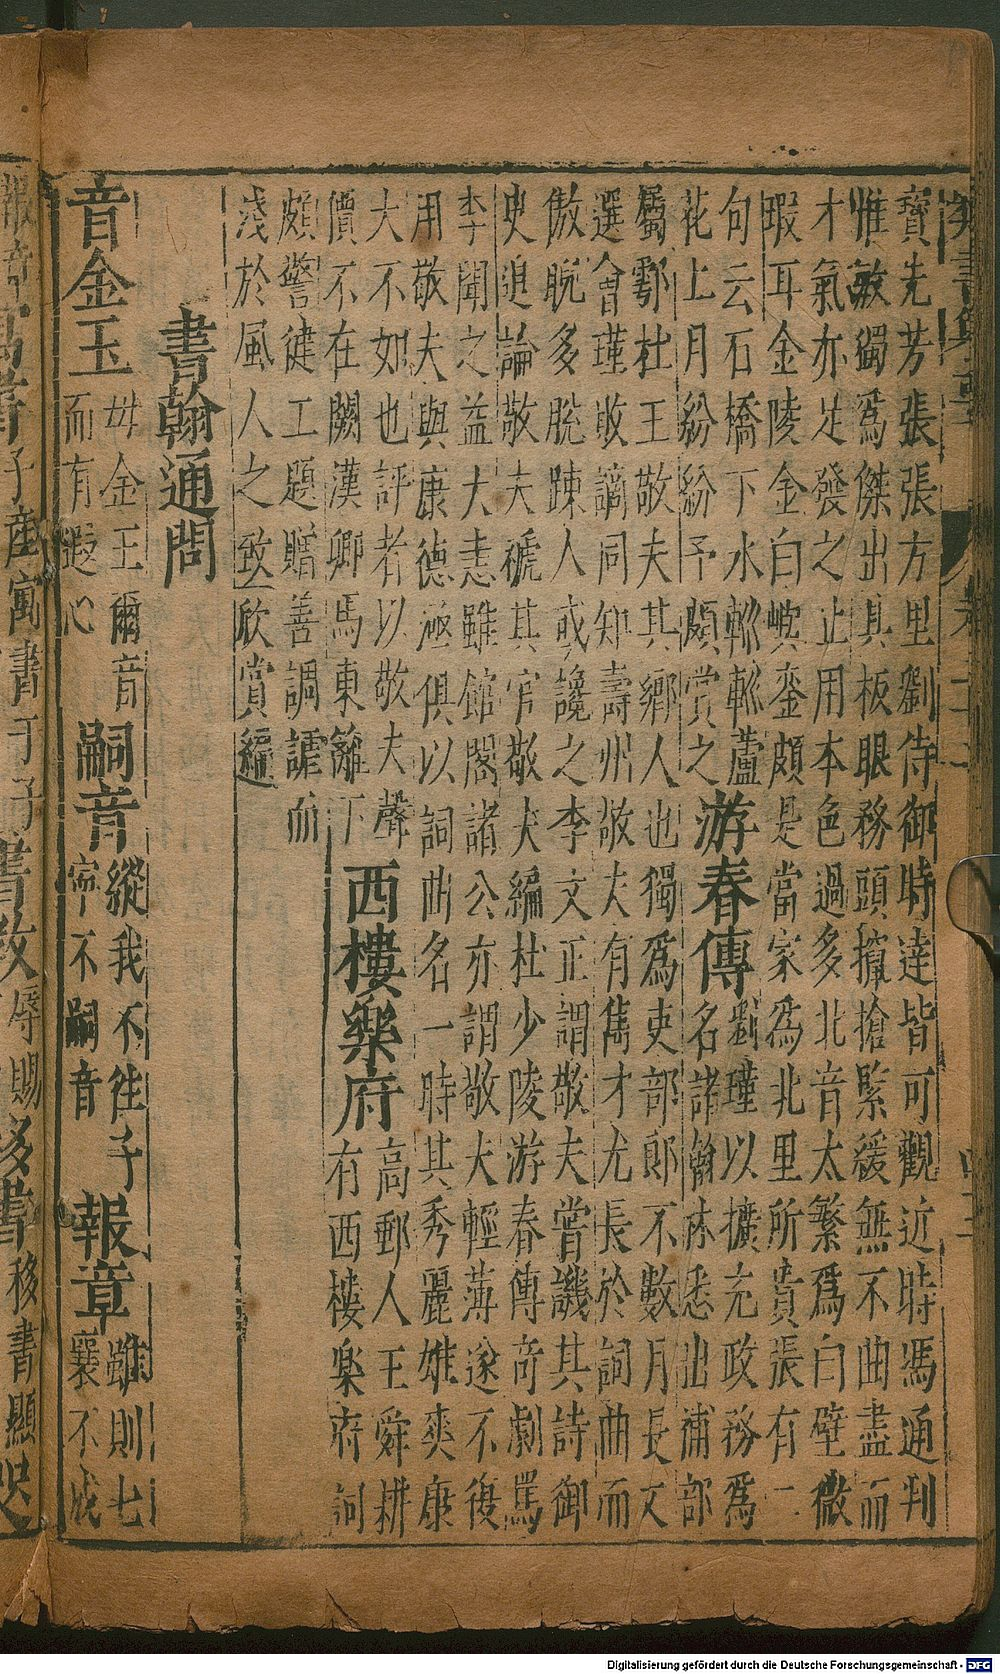 寶先芳張張方里劉侍御時達皆可觀近時馮通判
惟敏獨爲傑出其板眼務頭攛搶緊緩無不曲盡而
才氣亦足發之止用本色過多北音太繁爲白璧微
瑕耳金陵金白嶼鑾頗是當家爲北里所貴張有二
句云石橋下水粼粼蘆
花上月紛紛予頗賞之
游春傳
劉瑾以擴充政務爲
名諸翰林悉出補部
屬鄠杜王敬夫其鄉人也獨爲吏部郎不數月長文
選會瑾敗謫同知壽州敬夫有雋才尤長於詞曲而
傲睨多脫疎人或讒之李文正謂敬夫嘗譏其詩御
史追論敬夫褫其官敬夫編杜少陵游春傳奇劇罵
李聞之益大恚雖館閣諸公亦謂敬夫輕薄遂不復
用敬夫與康德涵俱以詞曲名一時其秀麗雄爽康
大不如也評者以敬夫聲
價不在關漢卿馬東籬下
西樓樂府
高郵人王舜耕
有西樓樂府詞
頗警健工題贈善調謔而
淺於風人之致欣賞編
書翰通問
音金玉
毋金玉爾音
而有遐心
嗣音
縱我不往子
寧不嗣音
報章
雖則七
襄不成
子產寓書于子
辱賜
移書
移書顯
Digitalisierung gefördert durch die Deutsche Forschungsgemeinschaft - DFG